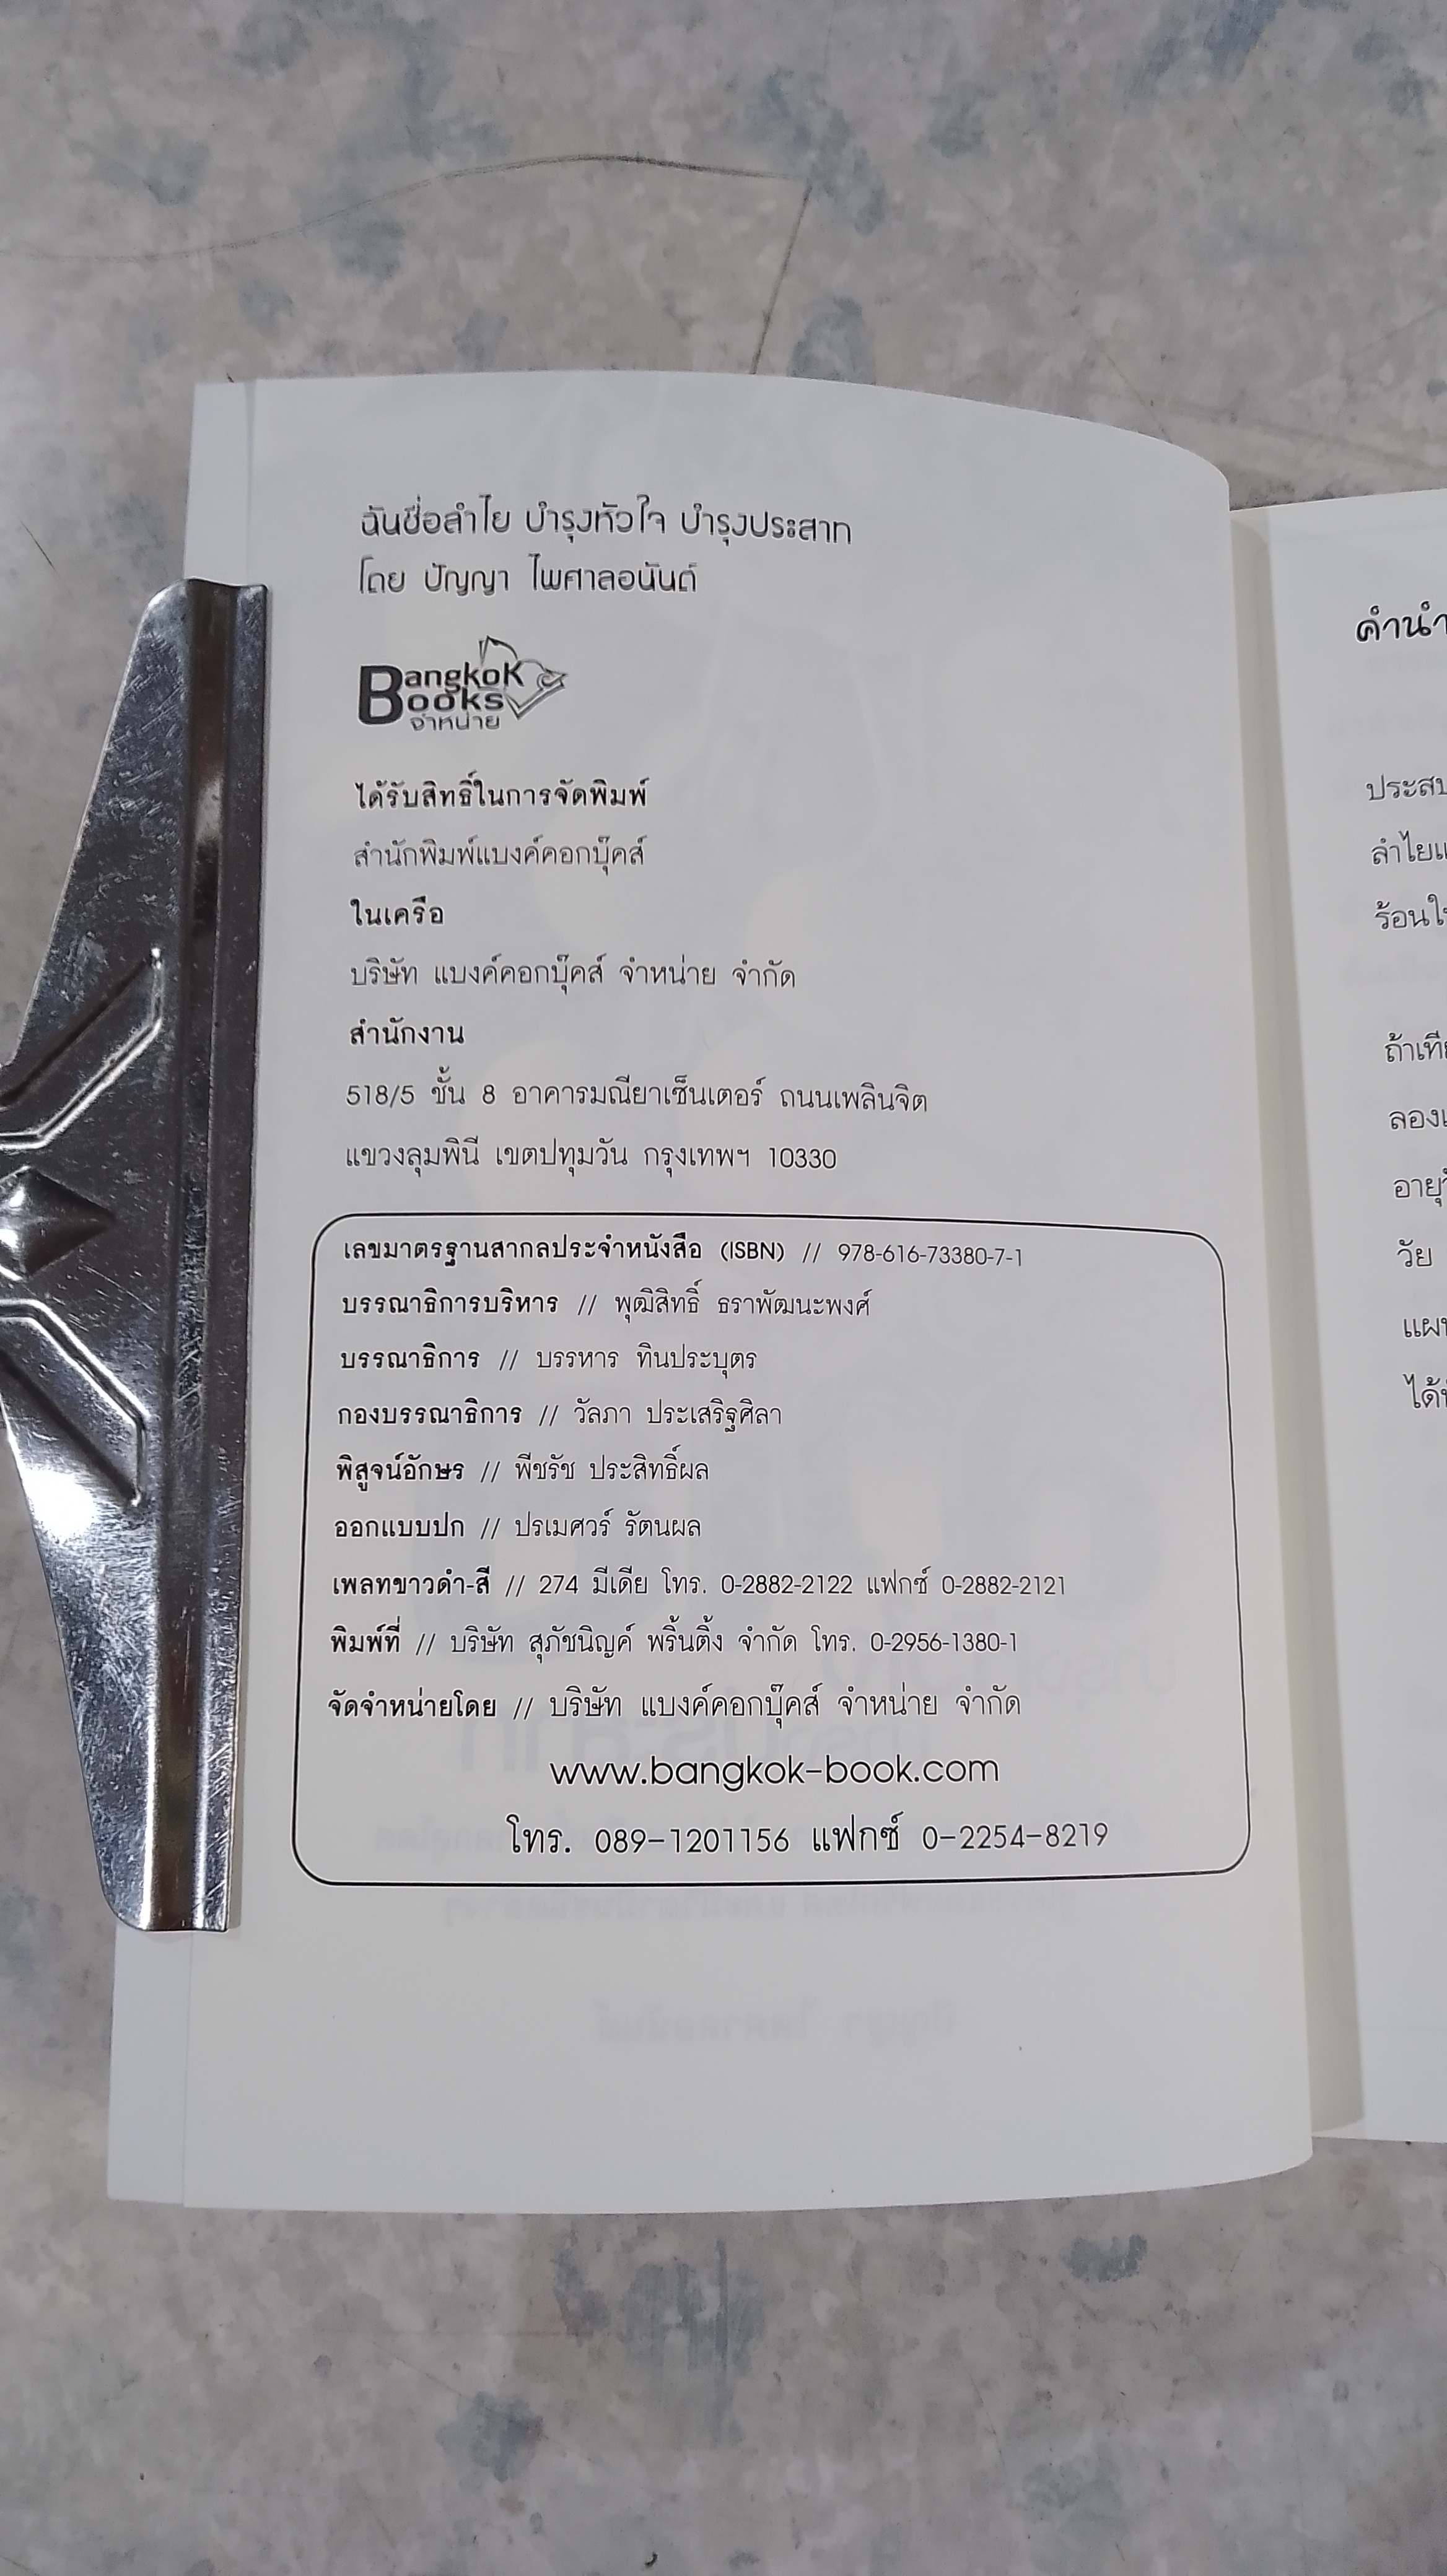 ฉันชื่อลำไย บำรุงหัวใจ บำรุงประสาท
โดย ปัญญา ไพศาลอนันต์
Bangkok
Books
จำหน่าย
ได้รับสิทธิ์ในการจัดพิมพ์
สำนักพิมพ์แบงค์คอกบุ๊คส์
ในเครือ
บริษัท แบงค์คอกบุ๊คส์ จำหน่าย จำกัด
สำนักงาน
518/5 ชั้น 8 อาคารมณียาเซ็นเตอร์ ถนนเพลินจิต
แขวงลุมพินี เขตปทุมวัน กรุงเทพฯ 10330
เลขมาตรฐานสากลประจำหนังสือ (ISBN) // 978-616-73380-7-1
บรรณาธิการบริหาร // พุฒิสิทธิ์ ธราพัฒนะพงศ์
บรรณาธิการ // บรรหาร ทินประบุตร
กองบรรณาธิการ // วัลภา ประเสริฐศิลา
พิสูจน์อักษร // พีชรัช ประสิทธิ์ผล
ออกแบบปก // ปรเมศวร์ รัตนผล
เพลทขาวดำ-สี // 274 มีเดีย โทร. 0-2882-2122 แฟกซ์ 0-2882-2121
พิมพ์ที่ // บริษัท สุภัชนิญค์ พริ้นติ้ง จำกัด โทร. 0-2956-1380-1
จัดจำหน่ายโดย // บริษัท แบงค์คอกบุ๊คส์ จำหน่าย จำกัด
www.bangkok-book.com
โทร. 089-1201156 แฟกซ์ 0-2254-8219
คำนำ
วัย